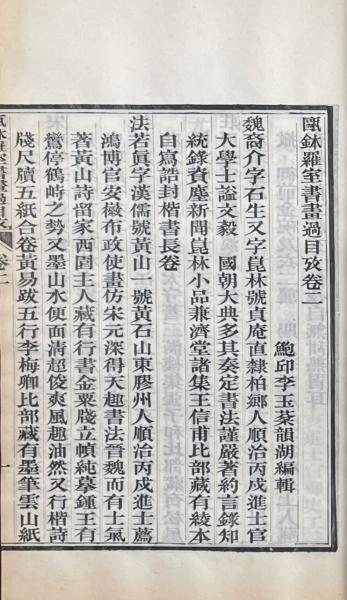 甌鉢羅室書畫過目攷卷二
鮑邱李玉棻韻湖編輯
魏裔介字石生又字崑林號貞庵直隸柏鄉人順治丙戌進士官
大學士諡文毅　國朝大典多其奏定書法謹嚴著約言錄知
統錄資塵新聞崑林小品兼濟堂諸集王信甫比部藏有綾本
自寫誥封楷書長卷
法若眞字漢儒號黃山一號黃石山東膠州人順治丙戌進士薦
鴻博官安徽布政使畫仿宋元深得天趣書法晉魏而有士氣
著黃山詩畱家西園主人藏有行書金粟牋立幀純摹鍾王有
鸞停鶴峙之勢又墨山水便面清超俊爽風趣油然又行楷詩
牋尺牘五紙合卷黃易跋五行李梅卿比部藏有墨筆雲山紙
卷二
一